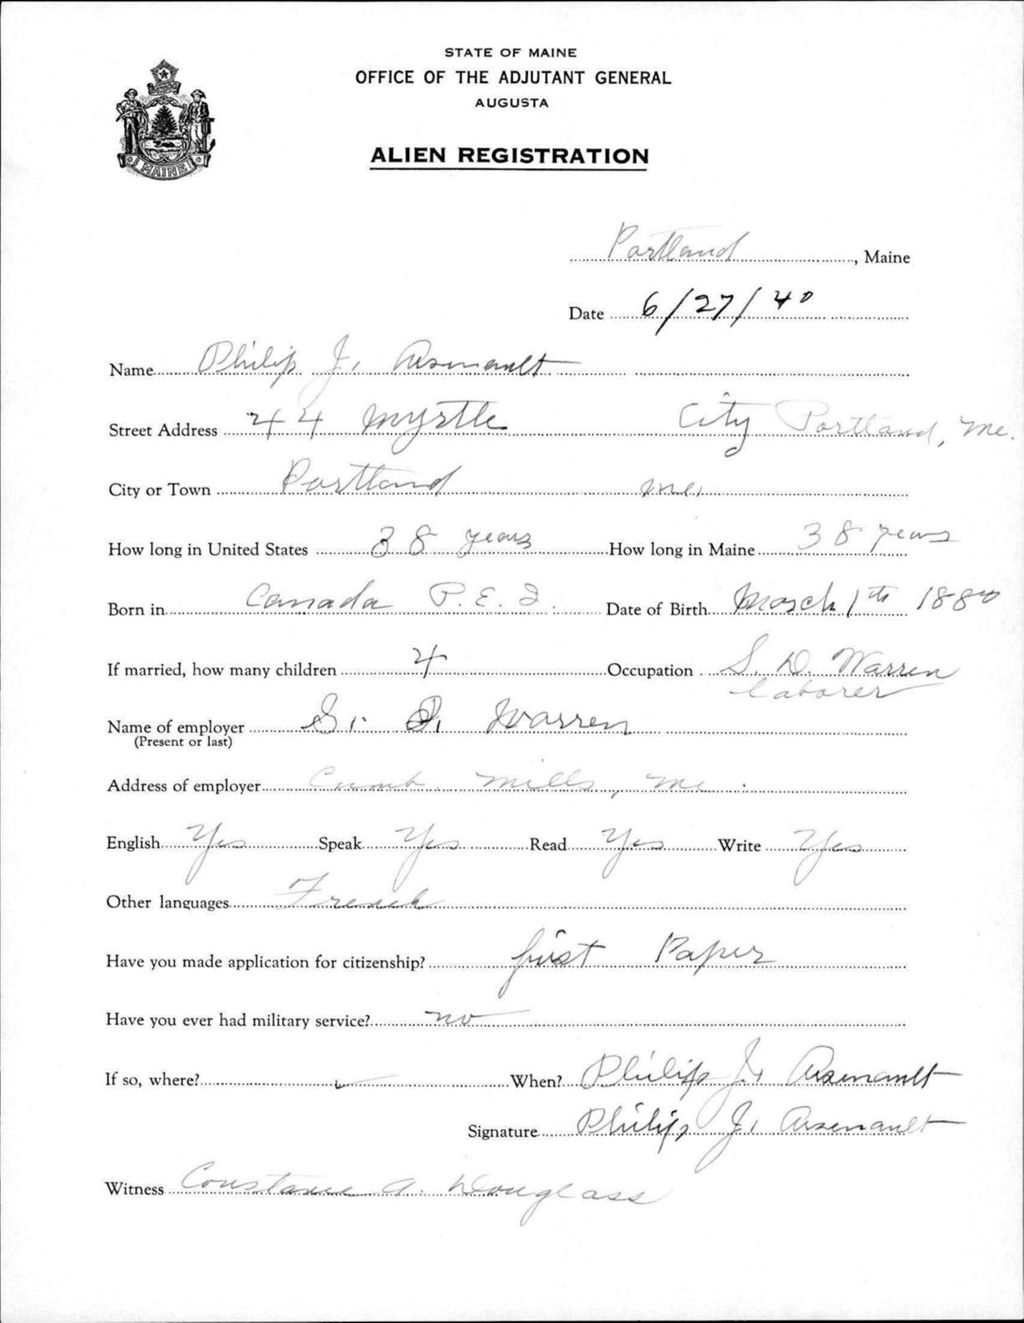 STATE OF MAINE
OFFICE OF THE ADJUTANT GENERAL
AUGUSTA
ALIEN REGISTRATION
MAINE
Portland, Maine
Date 6/27/40
Name Philip J. Arsenault
Street Address 44 Myrtle City Portland, Me.
City or Town Portland Me.
How long in United States 38 years How long in Maine 38 years
Born in Canada P.E.I. Date of Birth March 1th 1880
If married, how many children 4 Occupation S. D. Warren
laborer
Name of employer S. D. Warren
(Present or last)
Address of employer Cumb. Mills, Me.
English Yes Speak Yes Read Yes Write Yes
Other languages French
Have you made application for citizenship? first Paper
Have you ever had military service? no
If so, where? When? Philip J. Arsenault
Signature Philip J. Arsenault
Witness Constance A. Douglass